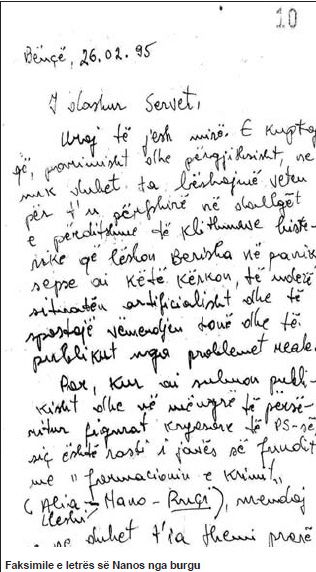 10
Bënçë, 26.02.95
I dashur Servet,
Uroj të jesh mirë. E kuptoj
që, parimisht dhe përgjithsisht, ne
nuk duhet ta lëshojmë veten
për t'u përfshirë në dallgët
e përditshme të klithmave histe-
rike që lëshon Berisha në panik
sepse ai këtë kërkon, të nderë
situatën artificialisht dhe të
spostojë vëmendjen tonë dhe të
publikut nga problemet reale.
Por, kur ai sulmon publi-
kisht dhe në mënyrë të përsë-
ritur figurat kryesore të PS-së
siç është rasti i javës së fundit
me "formacionin e krimit"
(Alia - Nano - Ruçi), mendoj
Lleshi
se duhet t'ia themi prapë
Faksimile e letrës së Nanos nga burgu